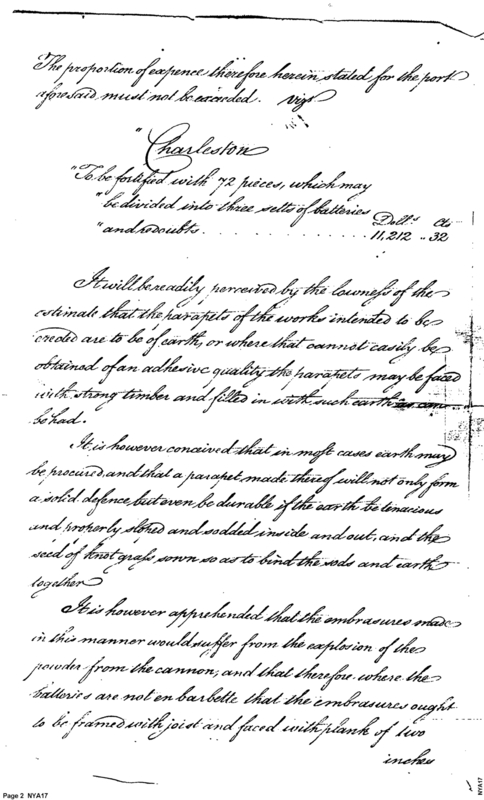 The proportion of expence therefore herein stated for the port
aforesaid must not be exceeded. Vizt
"Charleston
"To be fortified with 72 pieces, which may
"be divided into three setts of batteries
Dolls. Cts
"and redoubts. . . . . . . . . . . . . 11,212 .. 32
It will be readily perceived by the lowness of the
estimate that the parapets of the works intended to be
erected are to be of earth, or where that cannot easily be
obtained of an adhesive quality the parapets may be faced
with strong timber and filled in with such earth as can
be had.
It is however conceived that in most cases earth may
be procured and that a parapet made thereof will not only form
a solid defence but even be durable if the earth be tenacious
and properly sloped and sodded inside and out, and the
seed of knot grass sown so as to bind the sods and earth
together
It is however apprehended that the embrasures made
in this manner would suffer from the explosion of the
powder from the cannon, and that therefore where the
batteries are not en barbette that the embrasures ought
to be framed with joist and faced with plank of two
inches
Page 2 NYA17
NYA17